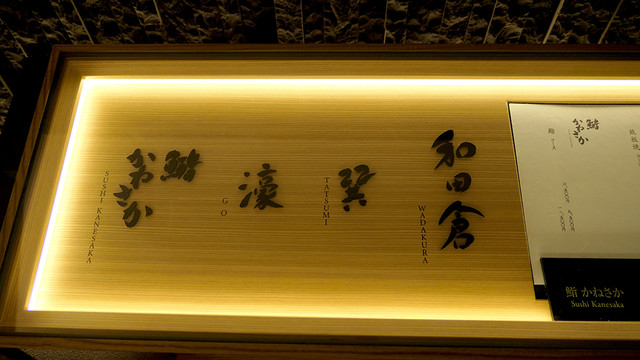 和田倉
WADAKURA
巽
TATSUMI
濠
GO
鮨
かねさか
SUSHI KANESAKA
鮨
かねさか
鮨 かねさか
Sushi Kanesaka